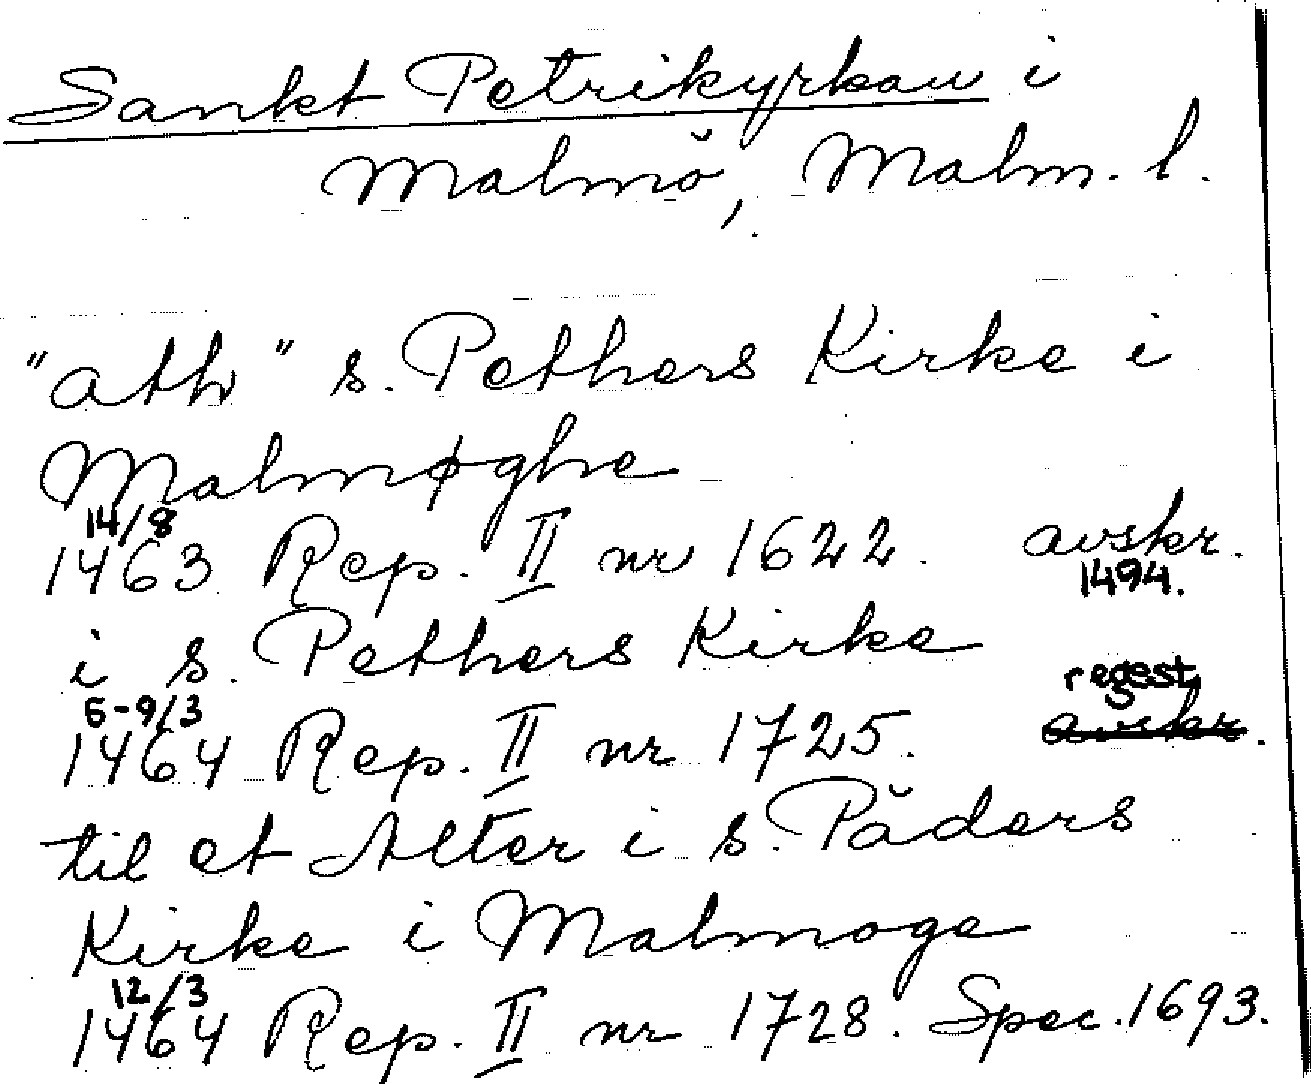 Sankt Petrikyrkan i
Malmö, Malm. l.
"ath" s. Pethers Kirke i
Malmøghe
14/8
1463 Rep. II nr 1622. avskr.
1494.
i s. Pethers Kirke
regest
6-9/3
1464 Rep. II nr 1725. avskr.
til et Alter i s. Päders
Kirke i Malmoge
12/3
1464 Rep. II nr 1728. Spec. 1693.